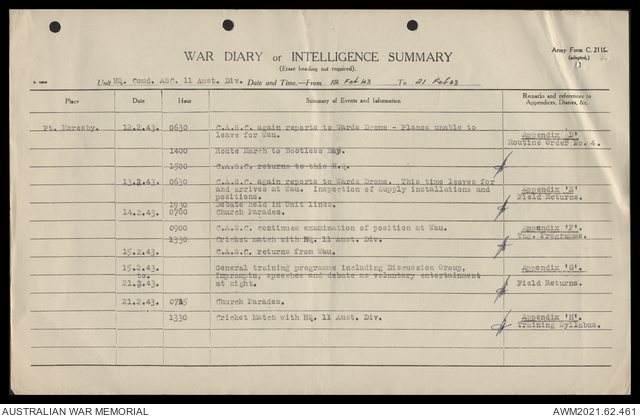 Army Form C. 2118.
(adapted.)
WAR DIARY or INTELLIGENCE SUMMARY
(Erase heading not required).
Unit HQ. Comd. ASC. 11 Aust. Div. Date and Time.—From 12 Feb 43 To 21 Feb 43
Place Date Hour Summary of Events and Information Remarks and references to Appendices, Diaries, &c.
Pt. Moresby. 12.2.43. 0630 C.A.S.C. again reports to Wards Drome - Planes unable to
leave for Wau. Appendix 'D'
Routine Order No. 4.
1400 Route March to Bootless Bay.
1500 C.A.S.C. returns to this H.Q.
13.2.43. 0630 C.A.S.C. again reports to Wards Drome. This time leaves for
and arrives at Wau. Inspection of Supply installations and Appendix 'E'
positions. Field Returns.
1930 Debate held in Unit lines.
14.2.43. 0700 Church Parades.
0900 C.A.S.C. continues examination of position at Wau. Appendix 'F'.
1330 Cricket Match with HQ. 11 Aust. Div. Tng. Programme.
15.2.43. C.A.S.C. returns from Wau.
15.2.43 General training programme including Discussion Group, Appendix 'G'.
to. Impromptu, speeches and debate as voluntary entertainment
21.2.43. at night. Field Returns.
21.2.43. 0715 Church Parades.
1330 Cricket Match with HQ. 11 Aust. Div. Appendix 'H'.
Training Syllabus.
AUSTRALIAN WAR MEMORIAL AWM2021.62.461